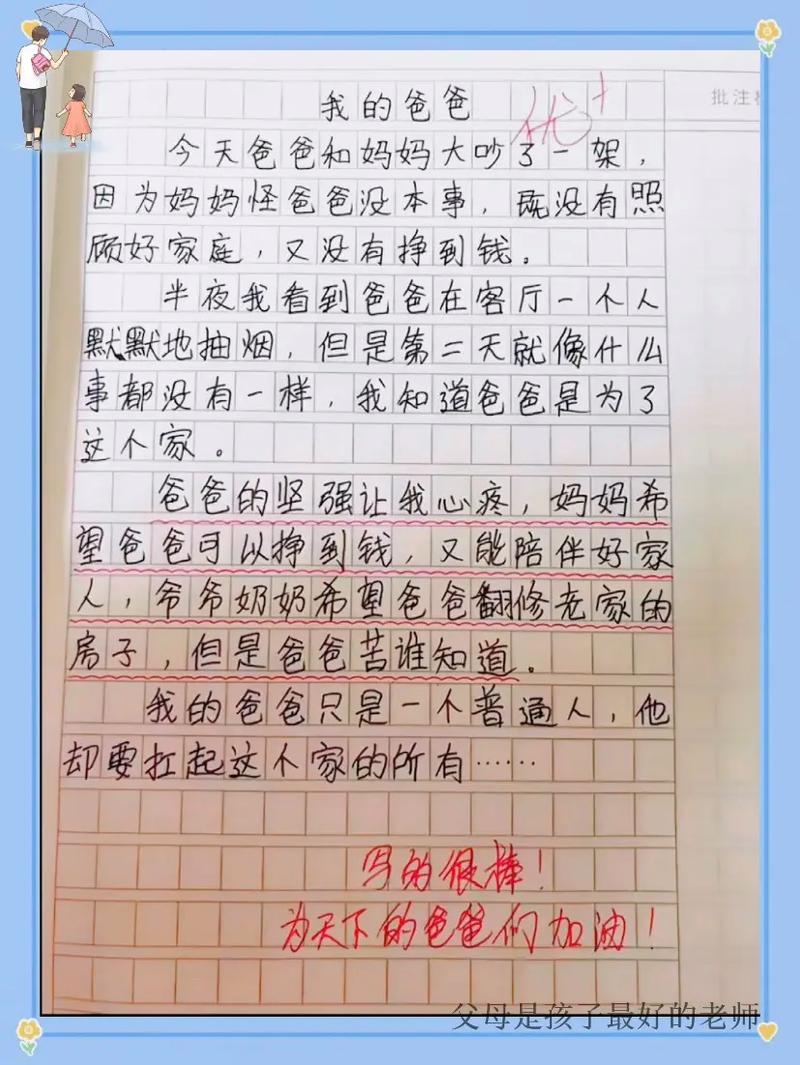 我的爸爸
优+
批注
今天爸爸和妈妈大吵了一架，
因为妈妈怪爸爸没本事，既没有照
顾好家庭，又没有挣到钱。
半夜我看到爸爸在客厅一个人
默默地抽烟，但是第二天就像什么
事都没有一样，我知道爸爸是为了
这个家。
爸爸的坚强让我心疼，妈妈希
望爸爸可以挣到钱，又能陪伴好家
人，爷爷奶奶希望爸爸翻修老家的
房子，但是爸爸苦谁知道。
我的爸爸只是一个普通人，他
却要扛起这个家的所有……
写的很棒！
为天下的爸爸们加油！
父母是孩子最好的老师